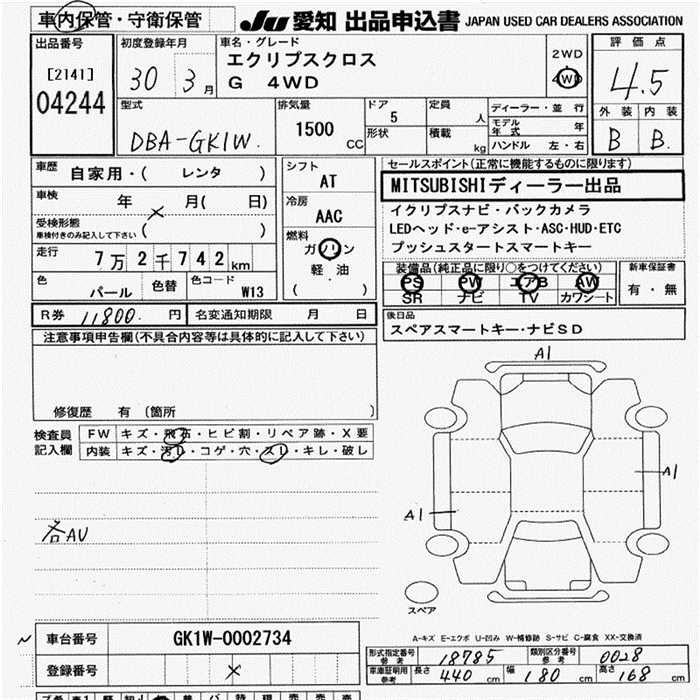 車内保管・守衛保管 JU 愛知 出品申込書 JAPAN USED CAR DEALERS ASSOCIATION
出品番号 初度登録年月 車名・グレード 評価点
[2141] 30 3月 エクリプスクロス 2WD 4.5
04244 G 4WD 4WD
型式 排気量 ドア 5 定員 人 ディーラー・並行 外装 内装
DBA-GK1W. 1500 CC 形状 積載 kg モデル年式 年 B B.
ハンドル 左・右
車歴 自家用・( レンタ ) シフト AT セールスポイント(正常に機能するものに限ります)
車検 年 × 月( 日) 冷房 AAC MITSUBISHIディーラー出品
受検形態 ( ) イクリプスナビ・バックカメラ
車検付きのみ記入して下さい 燃料 LEDヘッド・e-アシスト・ASC・HUD・ETC
走行 7万2千742km ガソリン プッシュスタートスマートキー
軽・油 装備品(純正品に限り○をつけてください) 新車保証書
色 パール 色替 色コード W13 ( ) PS PW エアB AW 有・無
SR ナビ TV カワシート
R券 11800. 円 名変通知期限 月 日 後日品
注意事項申告欄(不具合内容等は具体的に記入して下さい) スペアスマートキー・ナビSD
修復歴 有 (箇所 )
検査員 FW キズ・飛石・ヒビ割・リペア跡・X要
記入欄 内装 キズ・汚レ・コゲ・穴・スレ・キレ・破レ
A1
A1
A1
各AU
スペア
A-キズ E-エクボ U-凹み W-補修跡 S-サビ C-腐食 XX-交換済
車台番号 GK1W-0002734
登録番号 ×
形式指定番号 参考 18785 類別区分番号 参考 0028
車庫証明用 参考 長さ 440 cm 幅 180 cm 高さ 168 cm